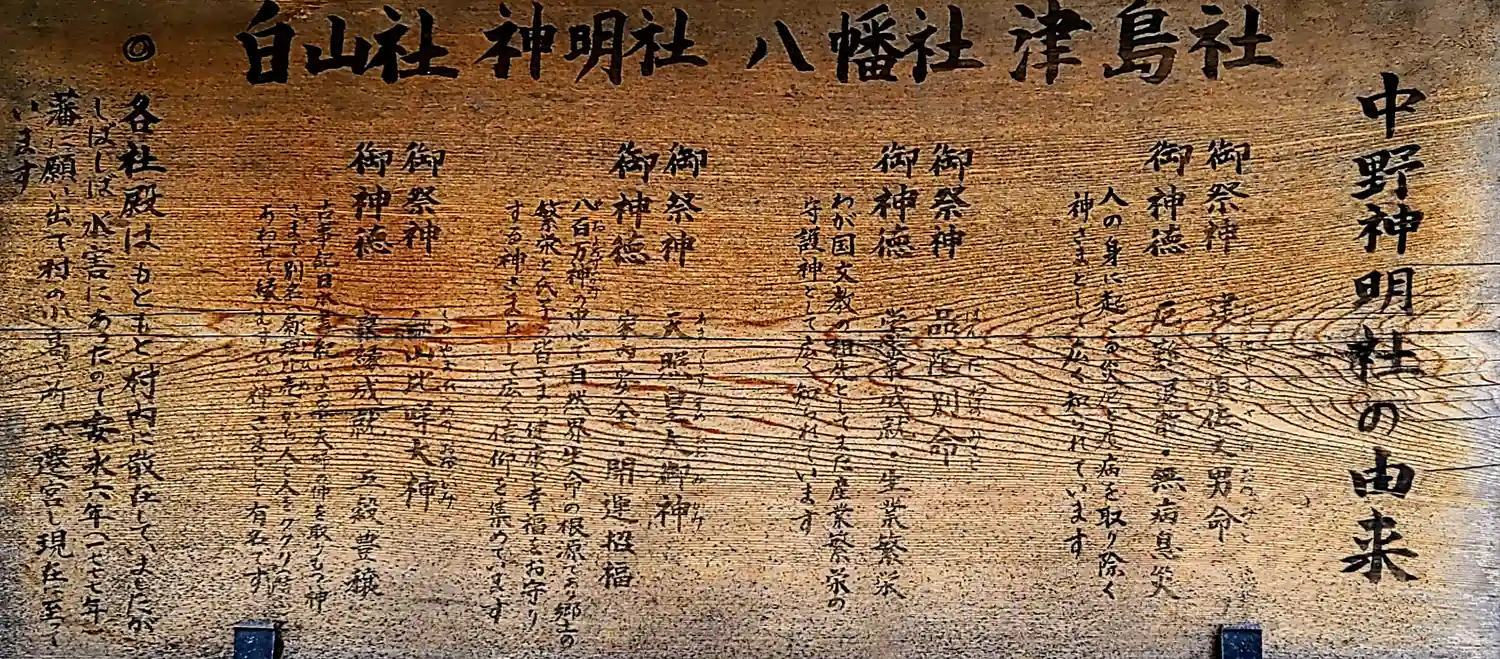 中野神明社の由来
津島社
御祭神 津東須佐之男命
御神徳 厄難消除・無病息災
人の身に起こる災厄と疾病を取り除く
神さまとして広く知られています
八幡社
御祭神 品陀別命
御神徳 学業成就・生業繁栄
わが国文教の祖神としてまた産業繁栄の
守護神として広く知られています
神明社
御祭神 天照皇大御神
御神徳 家内安全・開運招福
八百万神の中心で自然界生命の根源であり郷土の
繁栄と氏子の皆さまの健康と幸福をお守り
する神さまとして広く信仰を集めています
白山社
御祭神 白山比咩大神
御神徳 良縁成就・五穀豊穣
古事記日本書紀による大神の仲を取りもつ神
さまで別名菊理比売から人と人をククリ
あわせて縁むすびの神さまとして有名です
◎
各社殿はもともと村内に散在していましたが
しばしば水害にあったので安永六年(一七七七年)
藩に願い出て村の小高い所へ遷宮し現在に至って
います